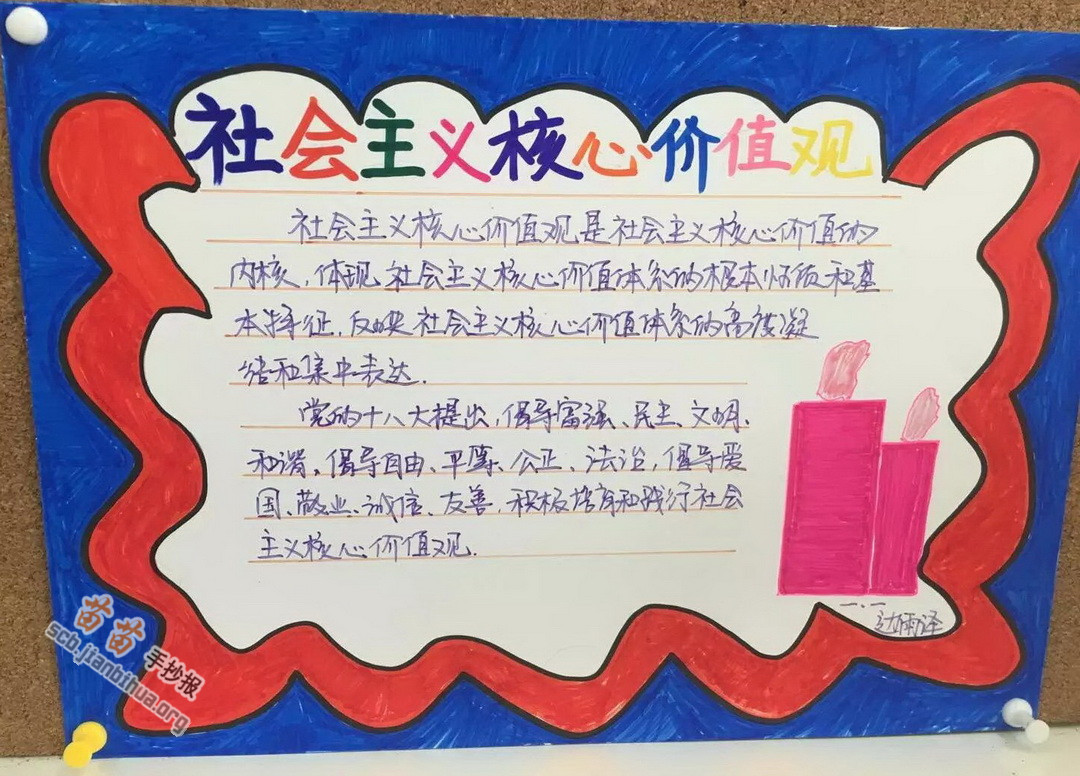 社会主义核心价值观
社会主义核心价值观是社会主义核心价值的
内核，体现社会主义核心价值体系的根本性质和基
本特征，反映社会主义核心价值体系的高度凝
结和集中表达.
党的十八大提出，倡导富强、民主、文明、
和谐，倡导自由、平等、公正、法治，倡导爱
国、敬业、诚信、友善，积极培育和践行社会
主义核心价值观.
一.一
苗苗
手抄报
scb.jianbihua.org